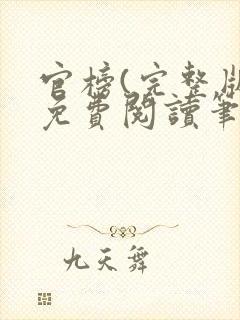 官榜(完整版
免費閱讀筆
九天舞